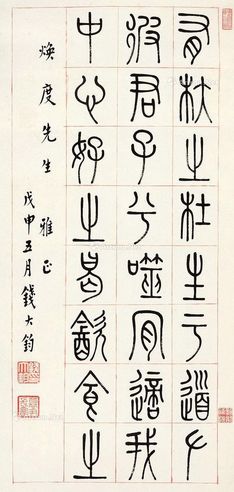 有杕之杜生于道左
彼君子兮噬肯適我
中心好之曷飲食之
煥度先生 雅正
戊申五月錢大鈞